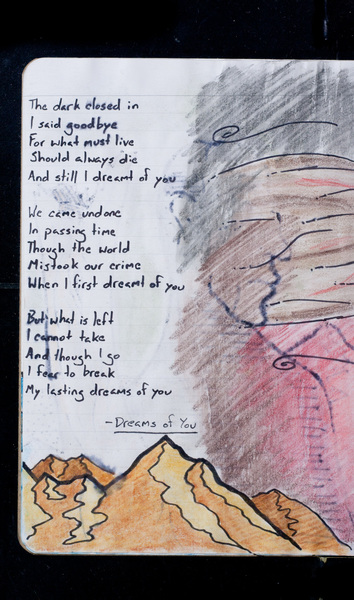 The dark closed in
I said goodbye
For what must live
Should always die
And still I dreamt of you
We came undone
In passing time
Though the world
Mistook our crime
When I first dreamt of you
But what is left
I cannot take
And though I go
I fear to break
My lasting dreams of you
- Dreams of You